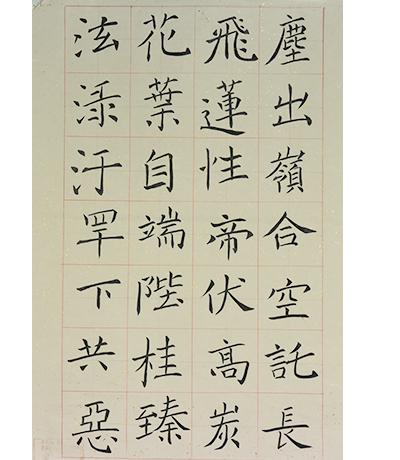 塵出嶺合空託長
飛蓮性帝伏高炭
花葉自端陛桂臻
泫淥汙罕下共惡